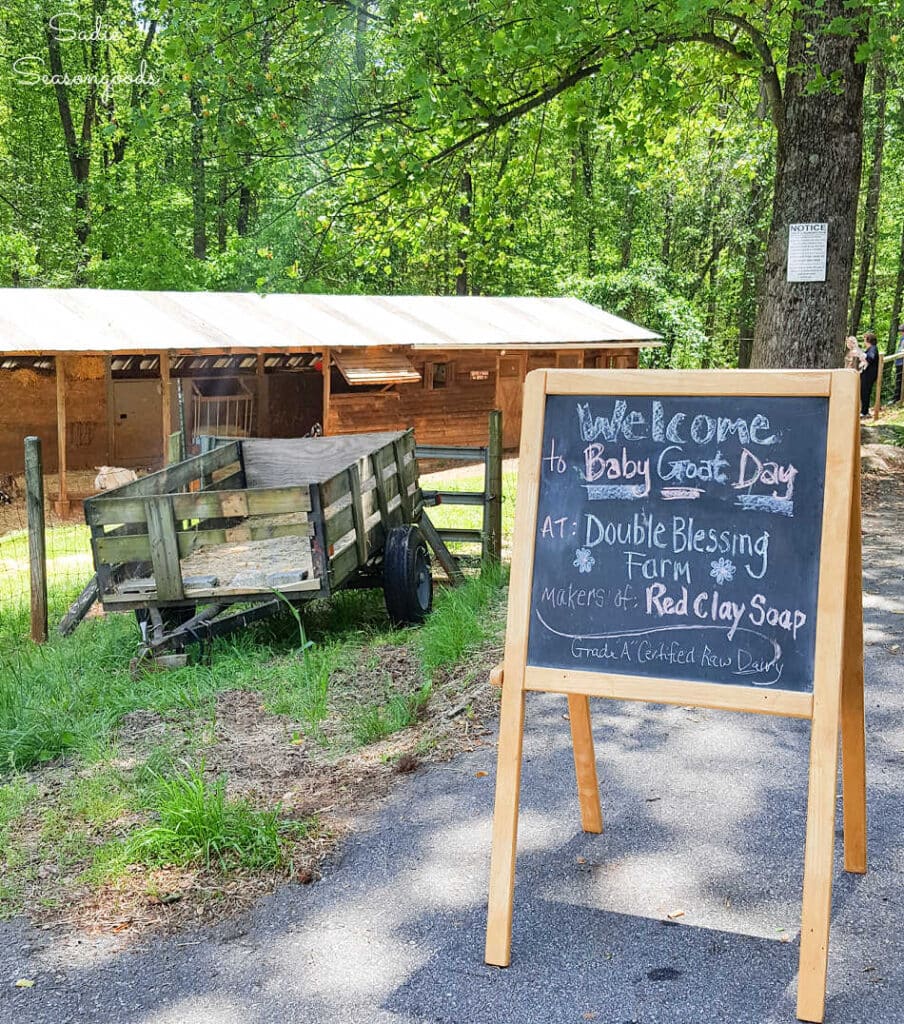 Sadie
Seasongoods
NOTICE
Welcome
to Baby Goat Day
AT: Double Blessing
Farm
makers of: Red Clay Soap
Grade "A" Certified Raw Dairy